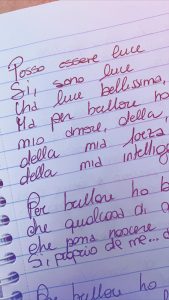 Posso essere luce
Si, sono luce
Una luce bellissima,
Ma per ballare ho
mio amore, della
della mia forza
della mia intellige
Per ballare ho b
che qualcosa di
che possa nascere
Si, proprio da me...
Per ballare ho